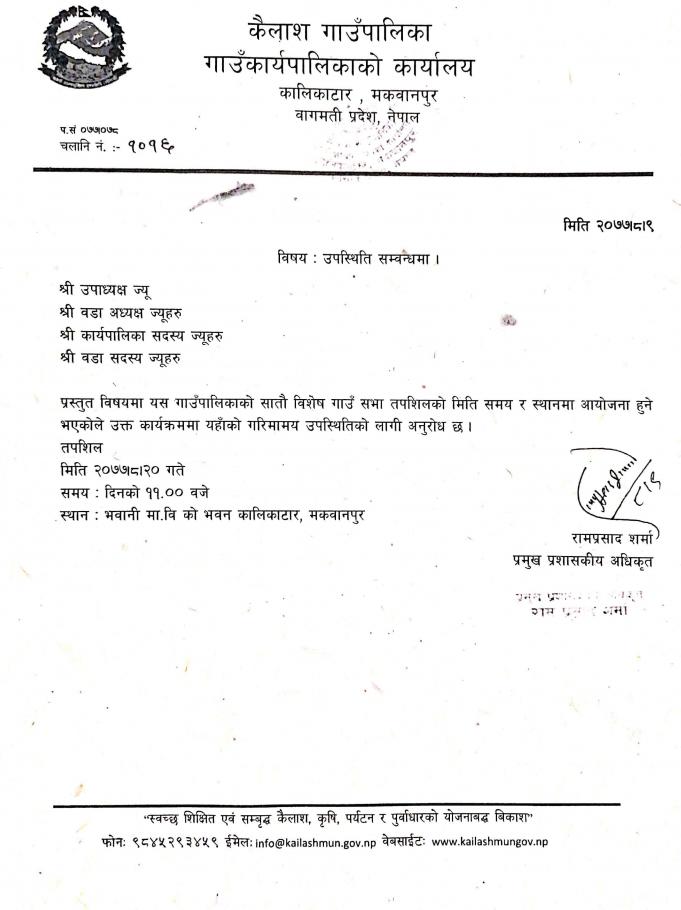 कैलाश गाउँपालिका
गाउँकार्यपालिकाको कार्यालय
कालिकाटार , मकवानपुर
वागमती प्रदेश, नेपाल
प.सं ०७७।०७८
चलानि नं. :- १०१६
मिति २०७७।८।९
विषय : उपस्थिति सम्वन्धमा ।
श्री उपाध्यक्ष ज्यू
श्री वडा अध्यक्ष ज्यूहरु
श्री कार्यपालिका सदस्य ज्यूहरु
श्री वडा सदस्य ज्यूहरु
प्रस्तुत विषयमा यस गाउँपालिकाको सातौ विशेष गाउँ सभा तपशिलको मिति समय र स्थानमा आयोजना हुने
भएकोले उक्त कार्यक्रममा यहाँको गरिमामय उपस्थितिको लागी अनुरोध छ ।
तपशिल
मिति २०७७।८।२० गते
समय : दिनको ११.०० वजे
स्थान : भवानी मा.वि को भवन कालिकाटार, मकवानपुर
८।९
रामप्रसाद शर्मा
प्रमुख प्रशासकीय अधिकृत
राम प्रसाद शर्मा
“स्वच्छ शिक्षित एवं सम्बृद्ध कैलाश, कृषि, पर्यटन र पुर्वाधारको योजनाबद्ध बिकाश”
फोनः ९८४५२९३४५९ ईमेलः info@kailashmun.gov.np वेबसाईटः www.kailashmungov.np